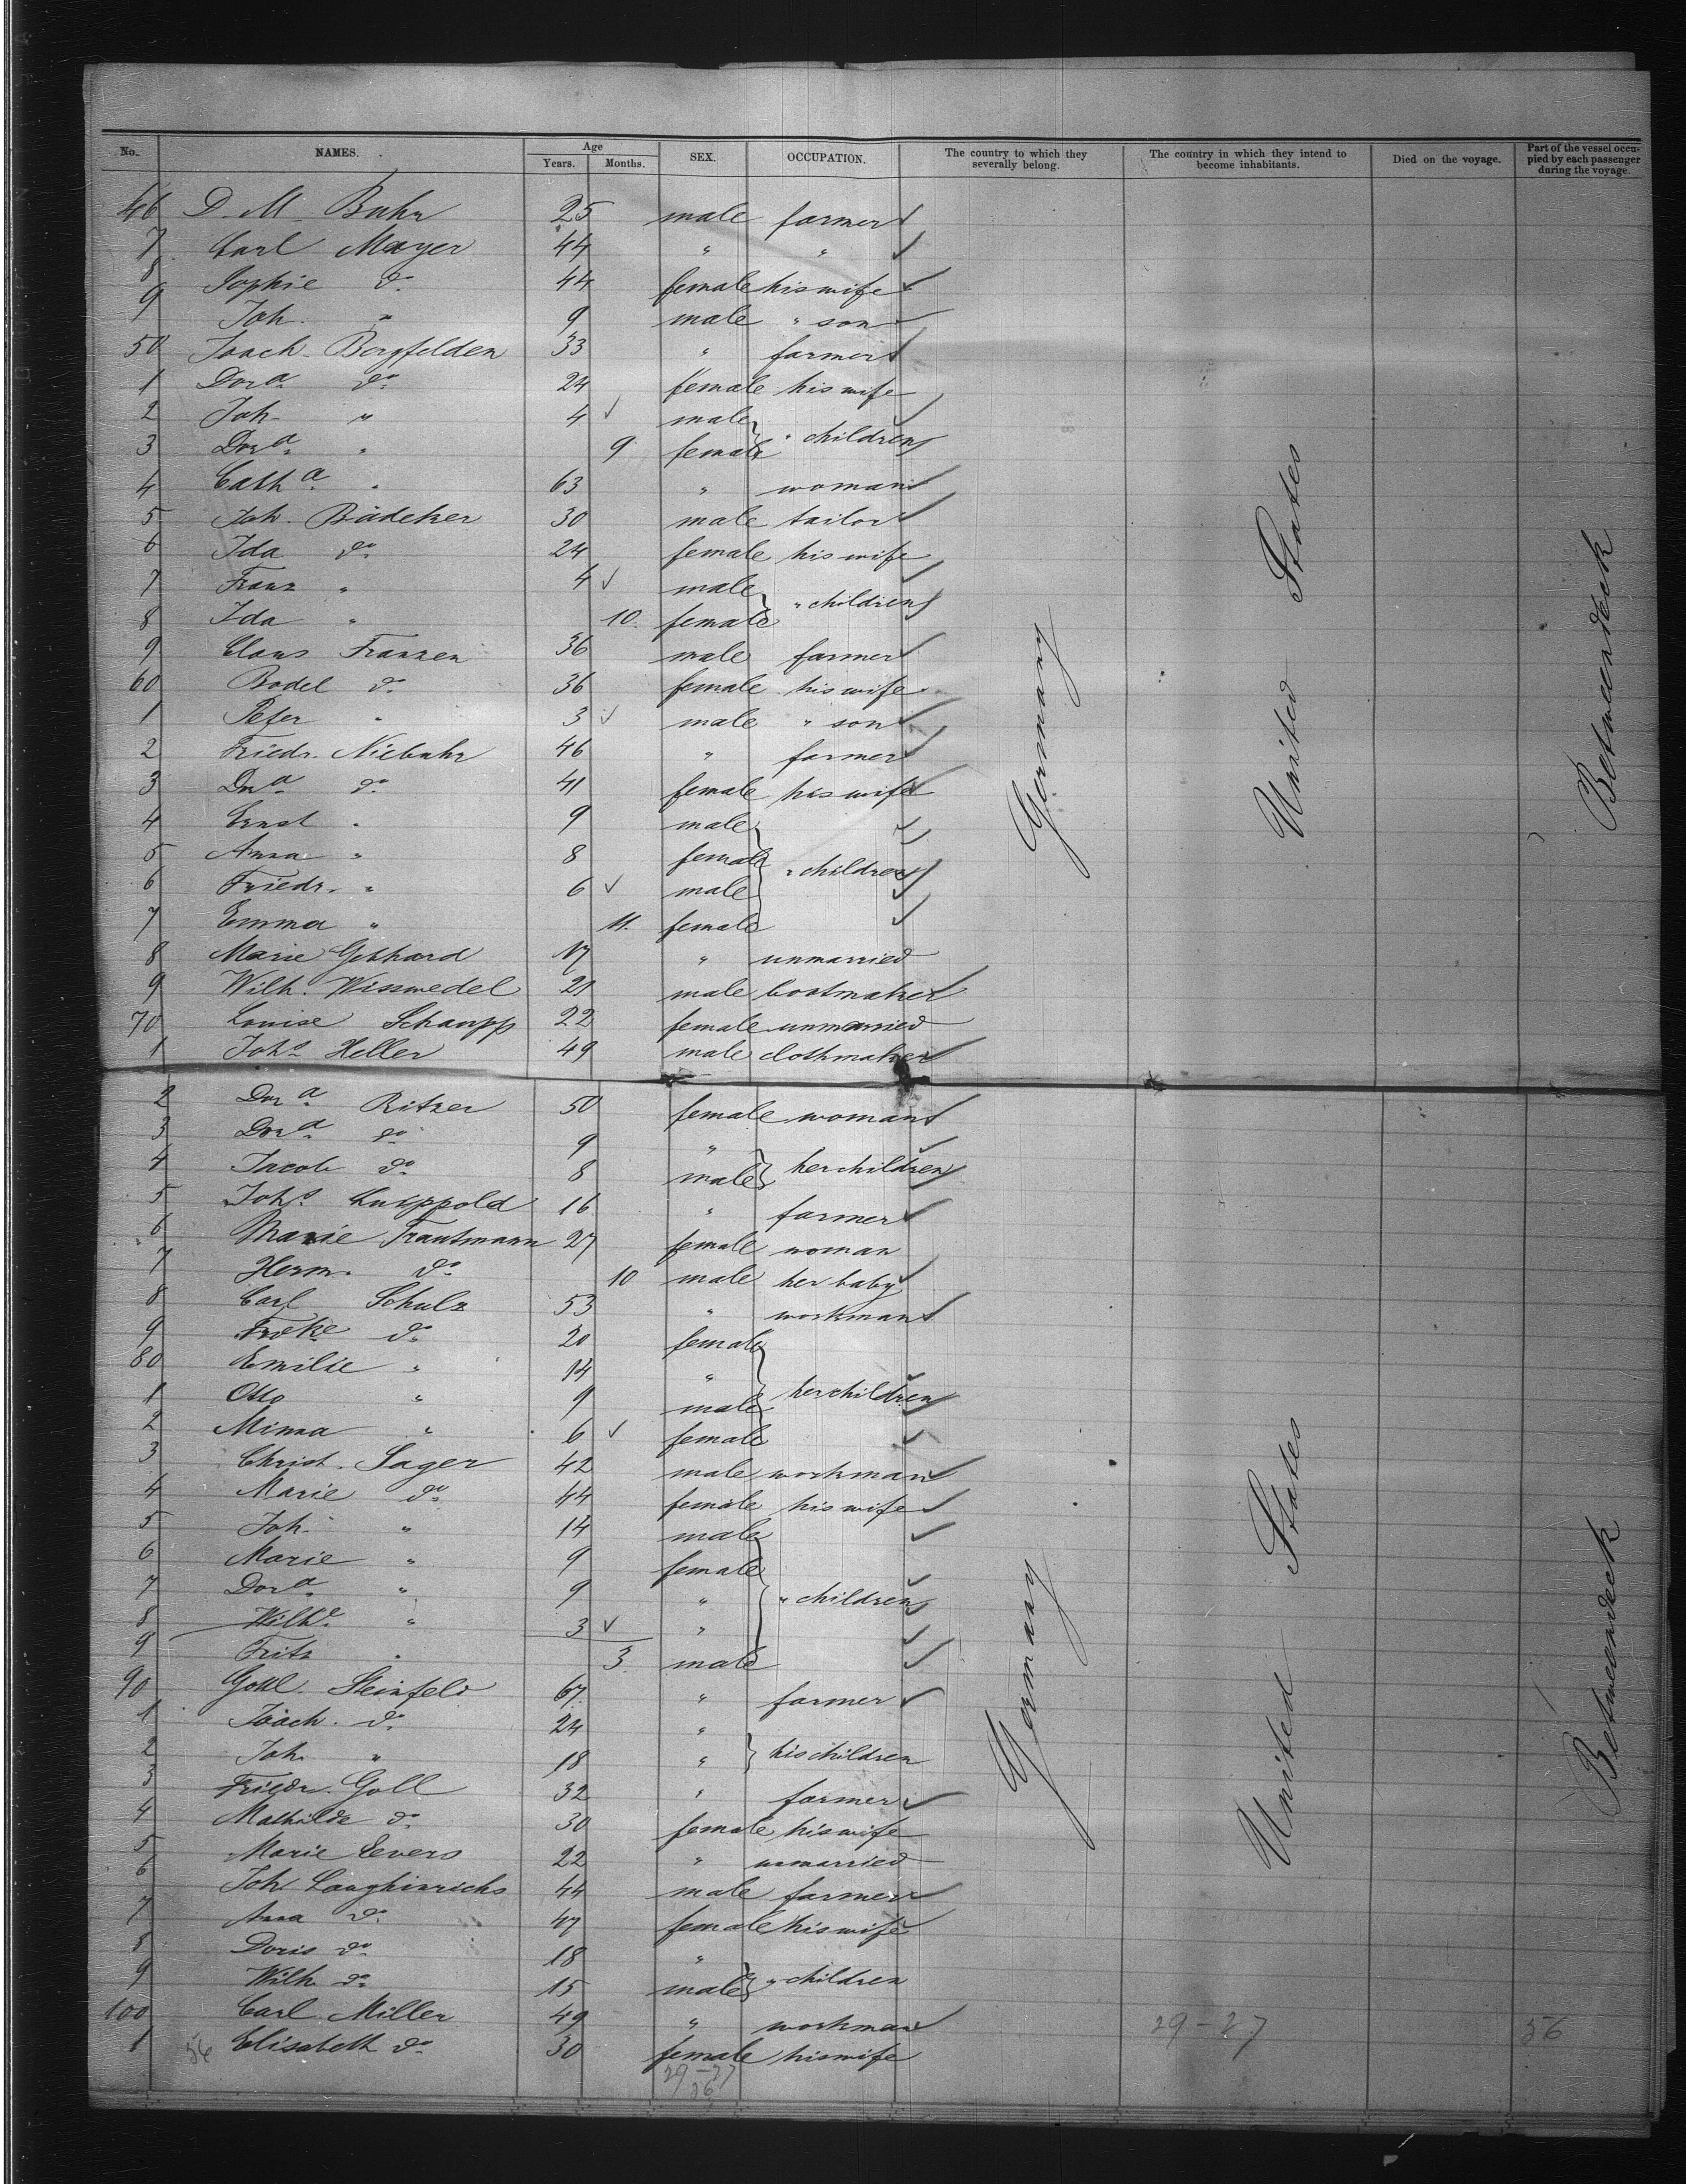 No. NAMES. Age Years. Months. SEX. OCCUPATION. The country to which they severally belong. The country in which they intend to become inhabitants. Died on the voyage. Part of the vessel occupied by each passenger during the voyage.
46 D. M. Buhr 25 male farmer
7 Carl Mayer 44 " "
8 Sophie do 44 female his wife
9 Joh. " 9 male " son
50 Joach. Bergfelden 33 " farmer
1 Dora do 24 female his wife
2 Joh. " 4 male
3 Dora " 9 female " children
4 Catha " 63 " woman
5 Joh. Bädeker 30 male tailor
6 Ida do 24 female his wife
7 Franz " 4 male
8 Ida " 10. female " children
9 Claus Franzen 36 male farmer
60 Bodel do 36 female his wife
1 Peter " 3 male " son
2 Friedr. Niebuhr 46 " farmer
3 Dora do 41 female his wife
4 Ernst " 9 male
5 Anna " 8 female " children
6 Friedr. " 6 male
7 Emma " 11. female
8 Marie Gebhard 17 " unmarried
9 Wilh. Wisswedel 21 male bootmaker
70 Louise Schaupp 22 female unmarried
1 Johs Heller 49 male clothmaker
2 Dora Ritzer 50 female woman
3 Dora do 9 "
4 Jacob do 8 male her children
5 Johs Luippold 16 " farmer
6 Marie Trautmann 27 female woman
7 Herm. do 10 male her baby
8 Carl Schulz 53 " workman
9 Frdke do 20 female
80 Emilie " 14 "
1 Otto " 9 male her children
2 Minna " 6 female
3 Christ. Sager 42 male workman
4 Marie do 44 female his wife
5 Joh. " 14 male
6 Marie " 9 female
7 Dora " 9 " " children
8 Wilhe " 3 "
9 Fritz " 3. male
90 Gottl. Steinfeld 67. " farmer
1 Joach. do 24 "
2 Joh. " 18 " his children
3 Friedr. Goll 32 " farmer
4 Mathilde do 30 female his wife
5 Marie Evers 22 " unmarried
6 Joh. Langhinrichs 44 male farmer
7 Anna do 47 female his wife
8 Doris do 18 "
9 Wilh. do 15 male " children
100 Carl Miller 49 " workman
1 Elisabeth do 30 female his wife
56 29-27 56 29-27 56
Germany United States Betweendeck
Germany United States Betweendeck